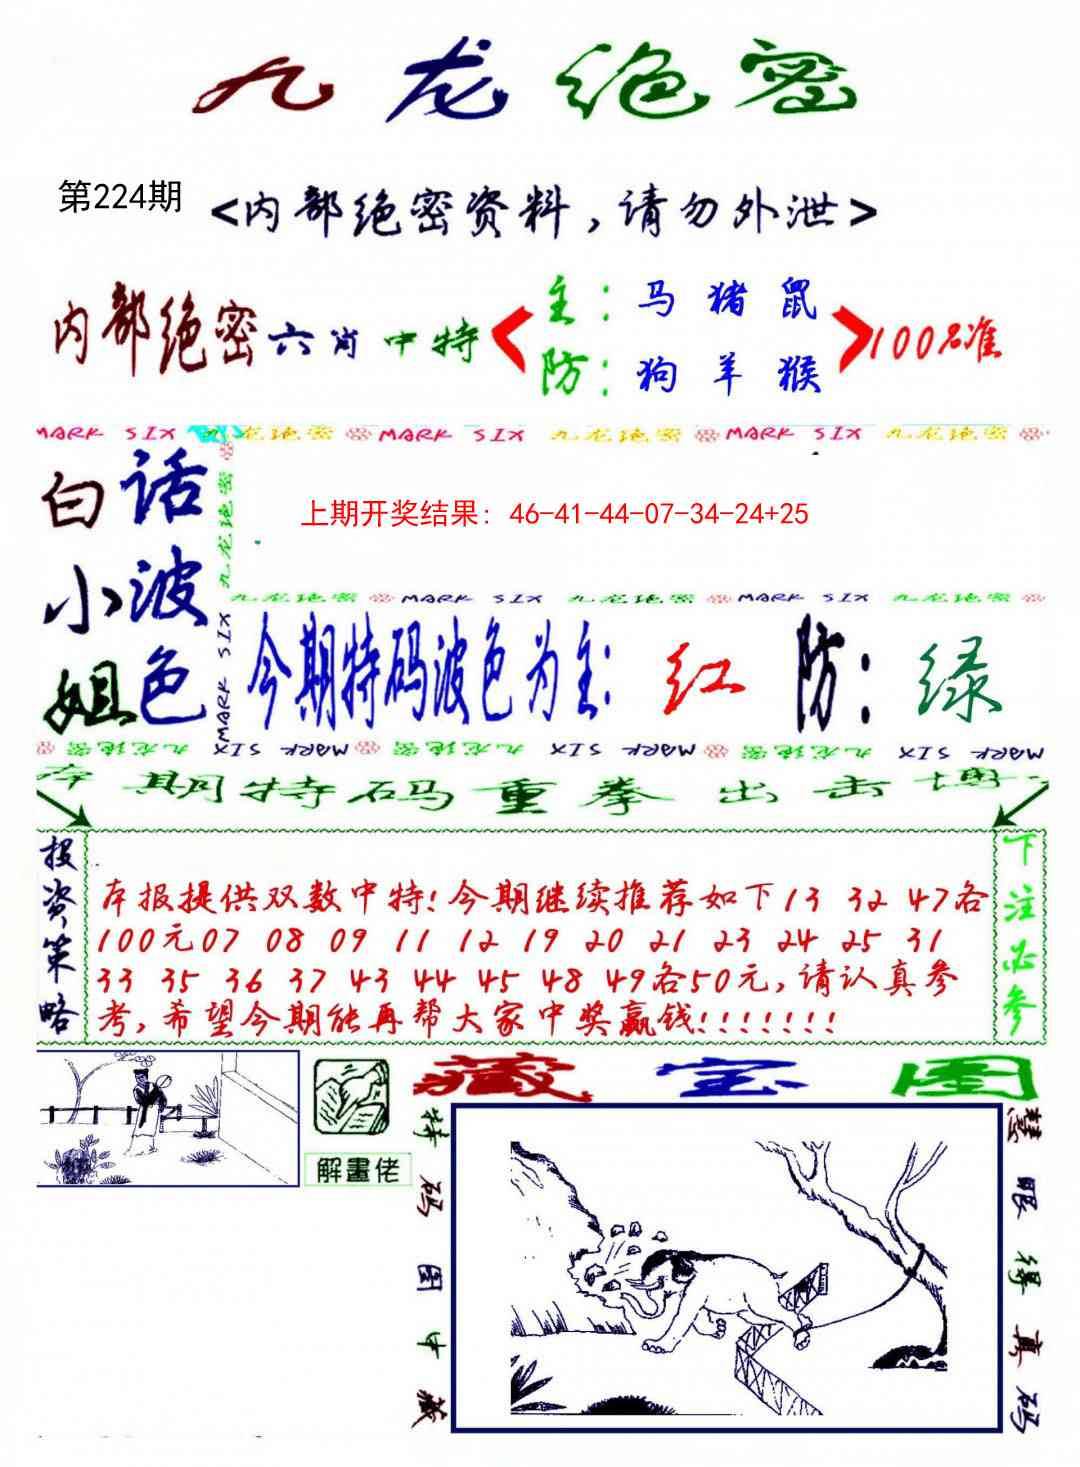 九龙绝密
第224期
<内部绝密资料,请勿外泄>
内部绝密六肖中特
主:马 猪 鼠
防:狗 羊 猴
100%准
MARK SIX 九龙绝密 MARK SIX 九龙绝密 MARK SIX 九龙绝密
白话
小波
姐色
九龙绝密
MARK SIX
上期开奖结果: 46-41-44-07-34-24+25
九龙绝密 MARK SIX 九龙绝密 MARK SIX 九龙绝密
今期特码波色为主: 红 防: 绿
九龙绝密 MARK SIX 九龙绝密 MARK SIX 九龙绝密 MARK SIX
本期特码重拳出击博
投资策略
本报提供双数中特!今期继续推荐如下13 32 47各
100元07 08 09 11 12 19 20 21 23 24 25 31
33 35 36 37 43 44 45 48 49各50元,请认真参
考,希望今期能再帮大家中奖赢钱!!!!!!!
下注必参
解畫佬
藏宝图
特码图中藏
慧眼得真码